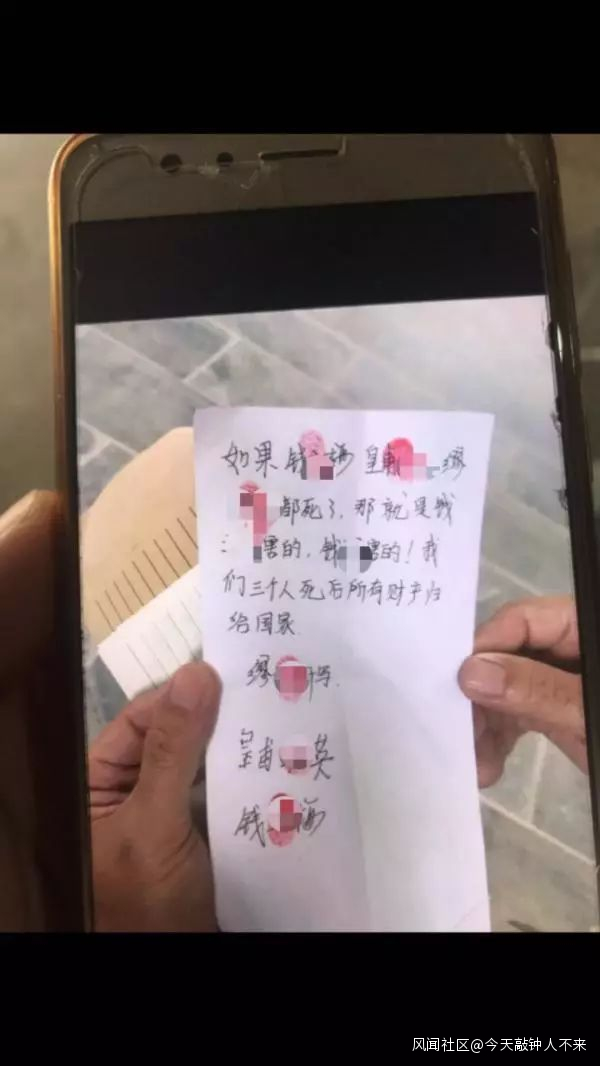 如果钱 海 皇甫 缪
都死了，那就是钱
害的，钱 害的！我
们三个人死后所有财产归
给国家.
缪
皇甫 英
钱 海
风闻社区@今天敲钟人不来